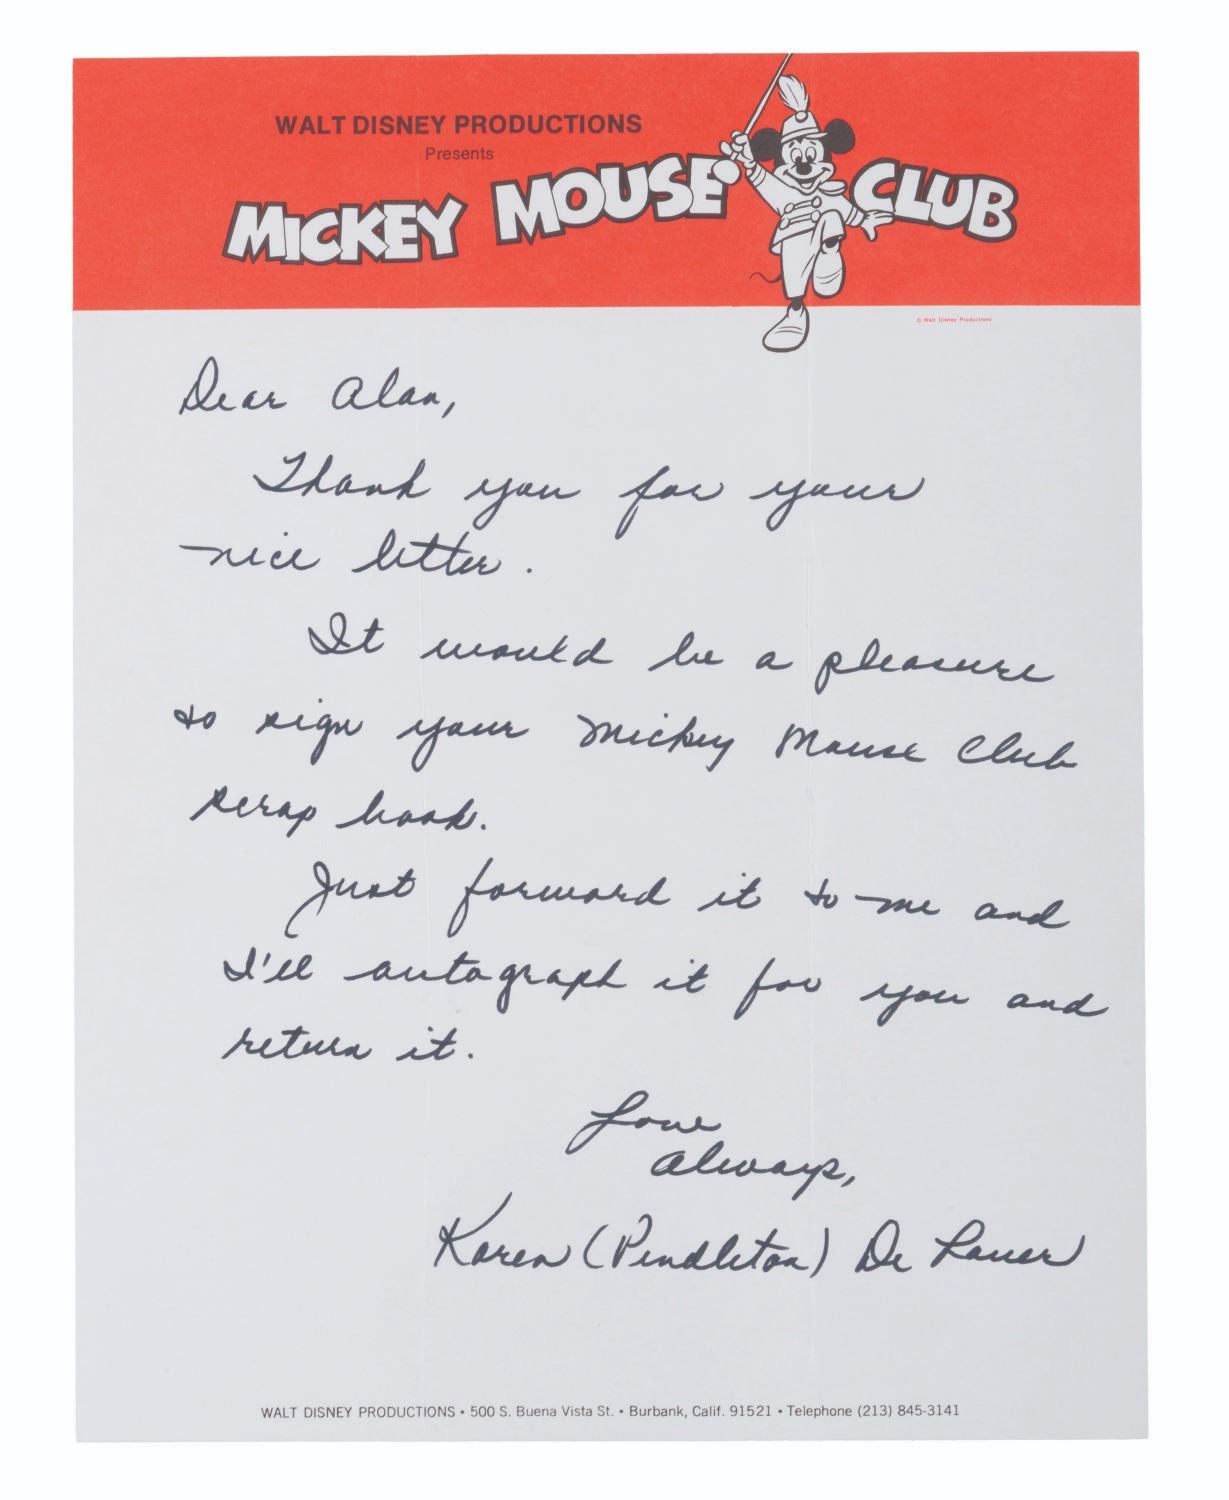 WALT DISNEY PRODUCTIONS
Presents
MICKEY MOUSE CLUB
© Walt Disney Productions
Dear Alan,
Thank you for your
nice letter.
It would be a pleasure
to sign your Mickey Mouse Club
scrap book.
Just forward it to me and
I'll autograph it for you and
return it.
Love
always,
Karen (Pendleton) De Lauer
WALT DISNEY PRODUCTIONS • 500 S. Buena Vista St. • Burbank, Calif. 91521 • Telephone (213) 845-3141